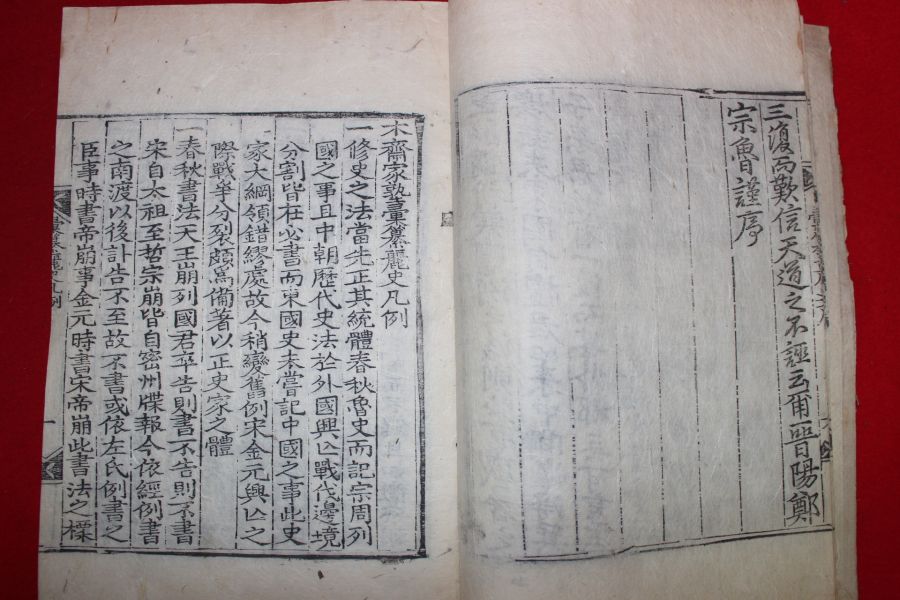 三復而歎信天道之不誣云爾晋陽鄭
宗魯謹序
木齋家塾彙纂麗史凡例
一修史之法當先正其統體春秋魯史而記宗周列
國之事且中朝歷代史法於外國興亡戰伐邊境
分割皆在必書而東國史未嘗記中國之事此史
家大綱領錯繆處故今稍變舊例宋金元興亡之
際戰爭分裂頗為備著以正史家之體
一春秋書法天王崩列國君卒告則書不告則不書
宋自太祖至哲宗崩皆自密州牒報今依經例書
之南渡以後訃告不至故不書或依左氏例書之
臣事時書帝崩事金元時書宋帝崩此書法之標